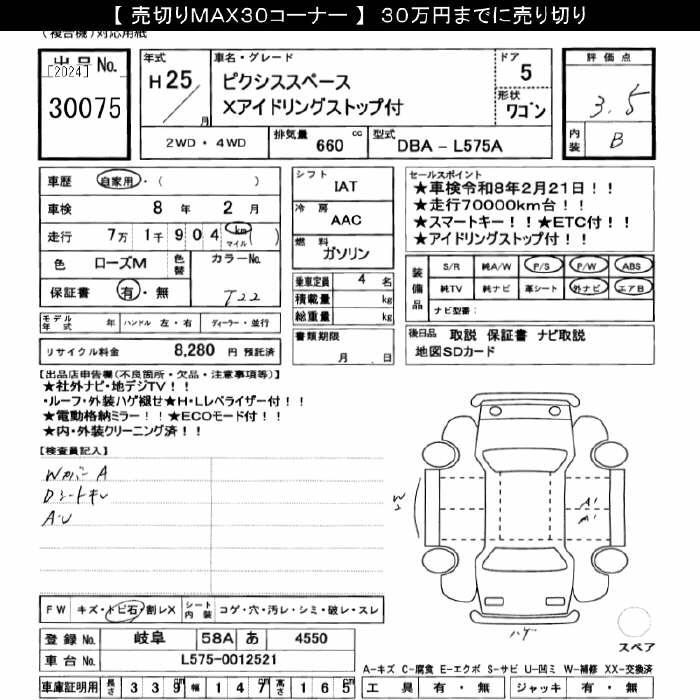 【 売切りMAX30コーナー 】 30万円までに売り切り
(複合機)対応用紙
出品No.
[2024]
30075
年式
H25/月
車名・グレード
ピクシススペース
Xアイドリングストップ付
ドア
5
形状
ワゴン
評価点
3.5
内装
B
2WD・4WD
排気量 660 cc
型式 DBA-L575A
車歴 自家用・( )
車検 8 年 2 月
走行 7万 1千 904 km マイル ( )
色 ローズM 色替
カラーNo.
T22
保証書 有・無
シフト
IAT
冷房
AAC
燃料
ガソリン
乗車定員 4 名
積載量 kg
総重量 kg
セールスポイント
★車検令和8年2月21日!!
★走行70000km台!!
★スマートキー!!★ETC付!!
★アイドリングストップ付!!
装備品
S/R 純A/W P/S P/W ABS
純TV 純ナビ 革シート 外ナビ エアB
ナビ型番:
モデル年式 年 ハンドル 左・右 ディーラー・並行
リサイクル料金 8,280 円 預託済
書類期限
月 日
後日品 取説 保証書 ナビ取説
地図SDカード
【出品店申告欄(不良箇所・欠品・注意事項等)】
★社外ナビ・地デジTV!!
・ルーフ・外装ハゲ褪せ★H・Lレベライザー付!!
★電動格納ミラー!!★ECOモード付!!
★内・外装クリーニング済!!
【検査員記入】
A
Dシートキレ
A・U
W
A'
ハゲ
スペア
FW キズ・トビ石・割レX
シート内装 コゲ・穴・汚レ・シミ・破レ・スレ
登録No. 岐阜 58A あ 4550
車台No. L575-0012521
A-キズ C-腐食 E-エクボ S-サビ U-凹ミ W-補修 XX-交換済
車庫証明用 長さ 339 幅 147 高さ 165
工具 有・無 ジャッキ 有・無